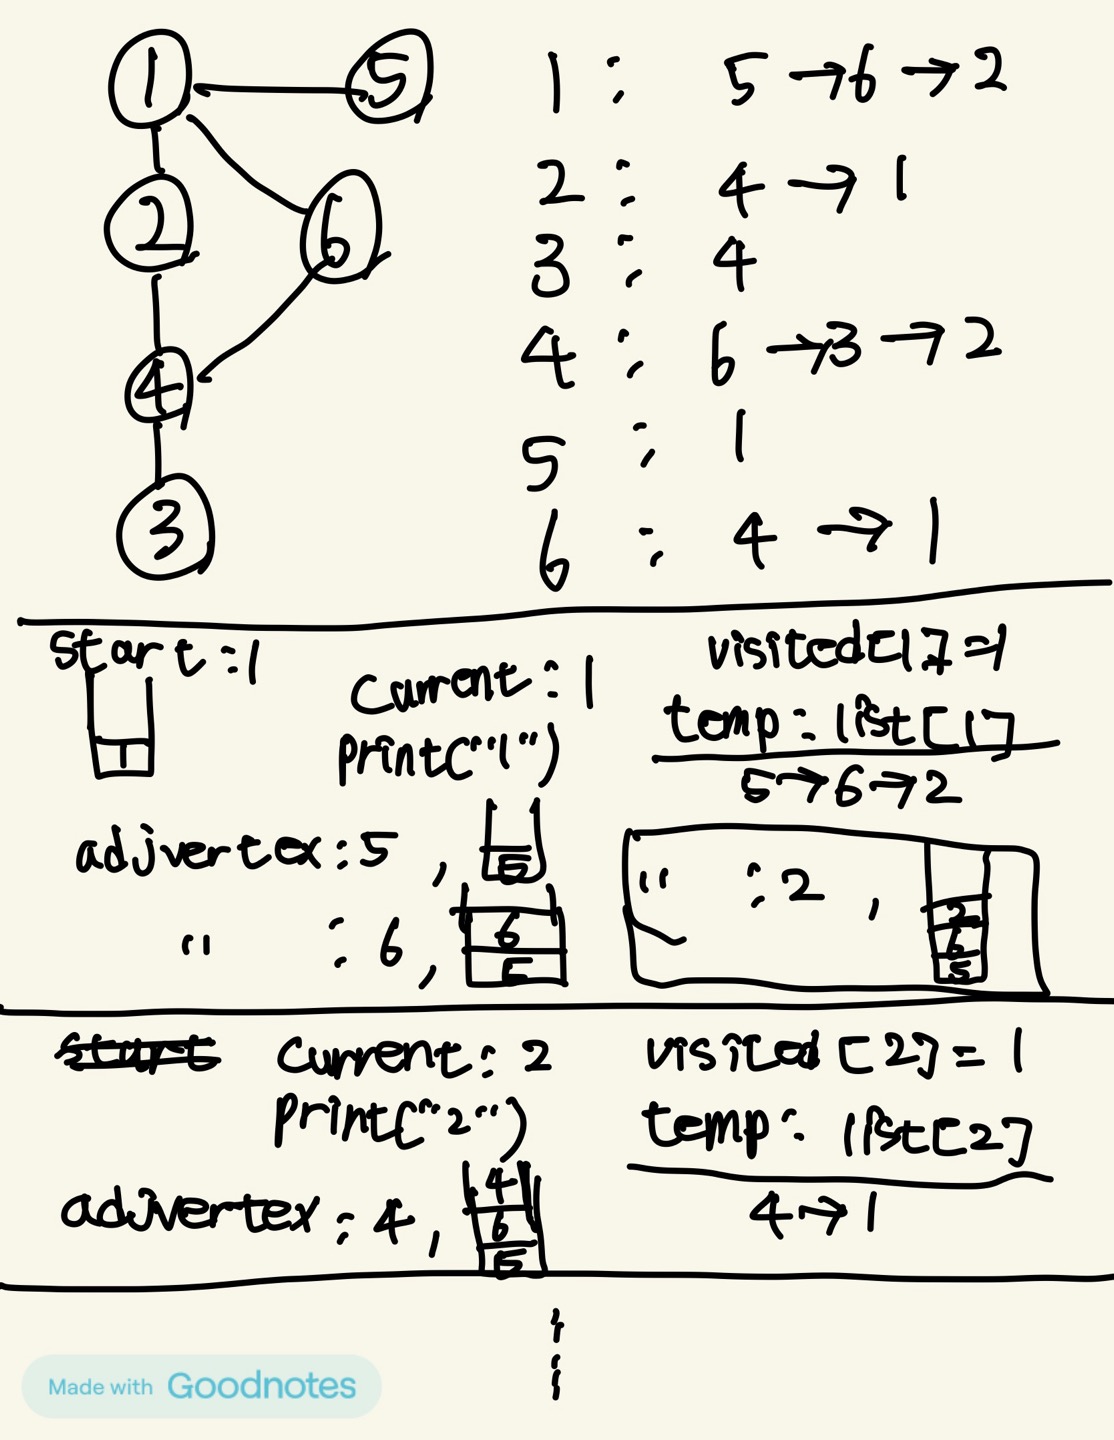 1 5 1 : 5 → 6 → 2
2 6 2 : 4 → 1
3 : 4
4 4 : 6 → 3 → 2
5 : 1
3 6 : 4 → 1
start : 1
1
current : 1
print("1")
visited[1] = 1
temp : list[1]
5 → 6 → 2
adjvertex : 5 , 5
" : 6 , 6 5
" : 2 , 2 6 5
start current : 2 visited [2] = 1
print("2") temp : list[2]
4 → 1
adjvertex : 4 , 4 6 5
Made with Goodnotes